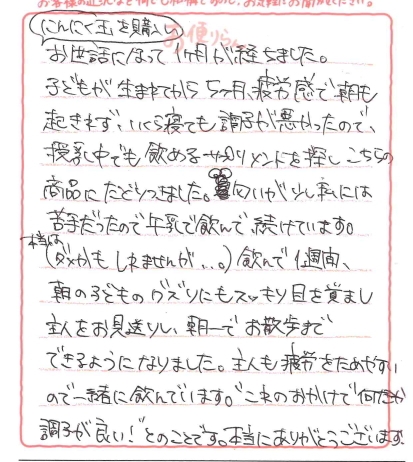 お便りらん
「にんにく玉」を購入し
お世話になって 1ヶ月が経ちました。
子どもが生まれてから 5ヶ月、疲労感で朝も
起きれず、いくら寝ても調子が悪かったので、
授乳中でも飲めるサプリメントを探し こちらの
商品にたどりつきました。匂いが少し私には
苦手だったので牛乳で飲んで続けています。
(本当はダメかもしれませんが...。) 飲んで1週間、
朝の子どものグズりにもスッキリ目を覚まし
主人をお見送りし、朝一でお散歩まで
できるようになりました。主人も疲労をためやすい
ので一緒に飲んでいます。"これのおかげで何だか
調子が良い!"とのことです。本当にありがとうございます!